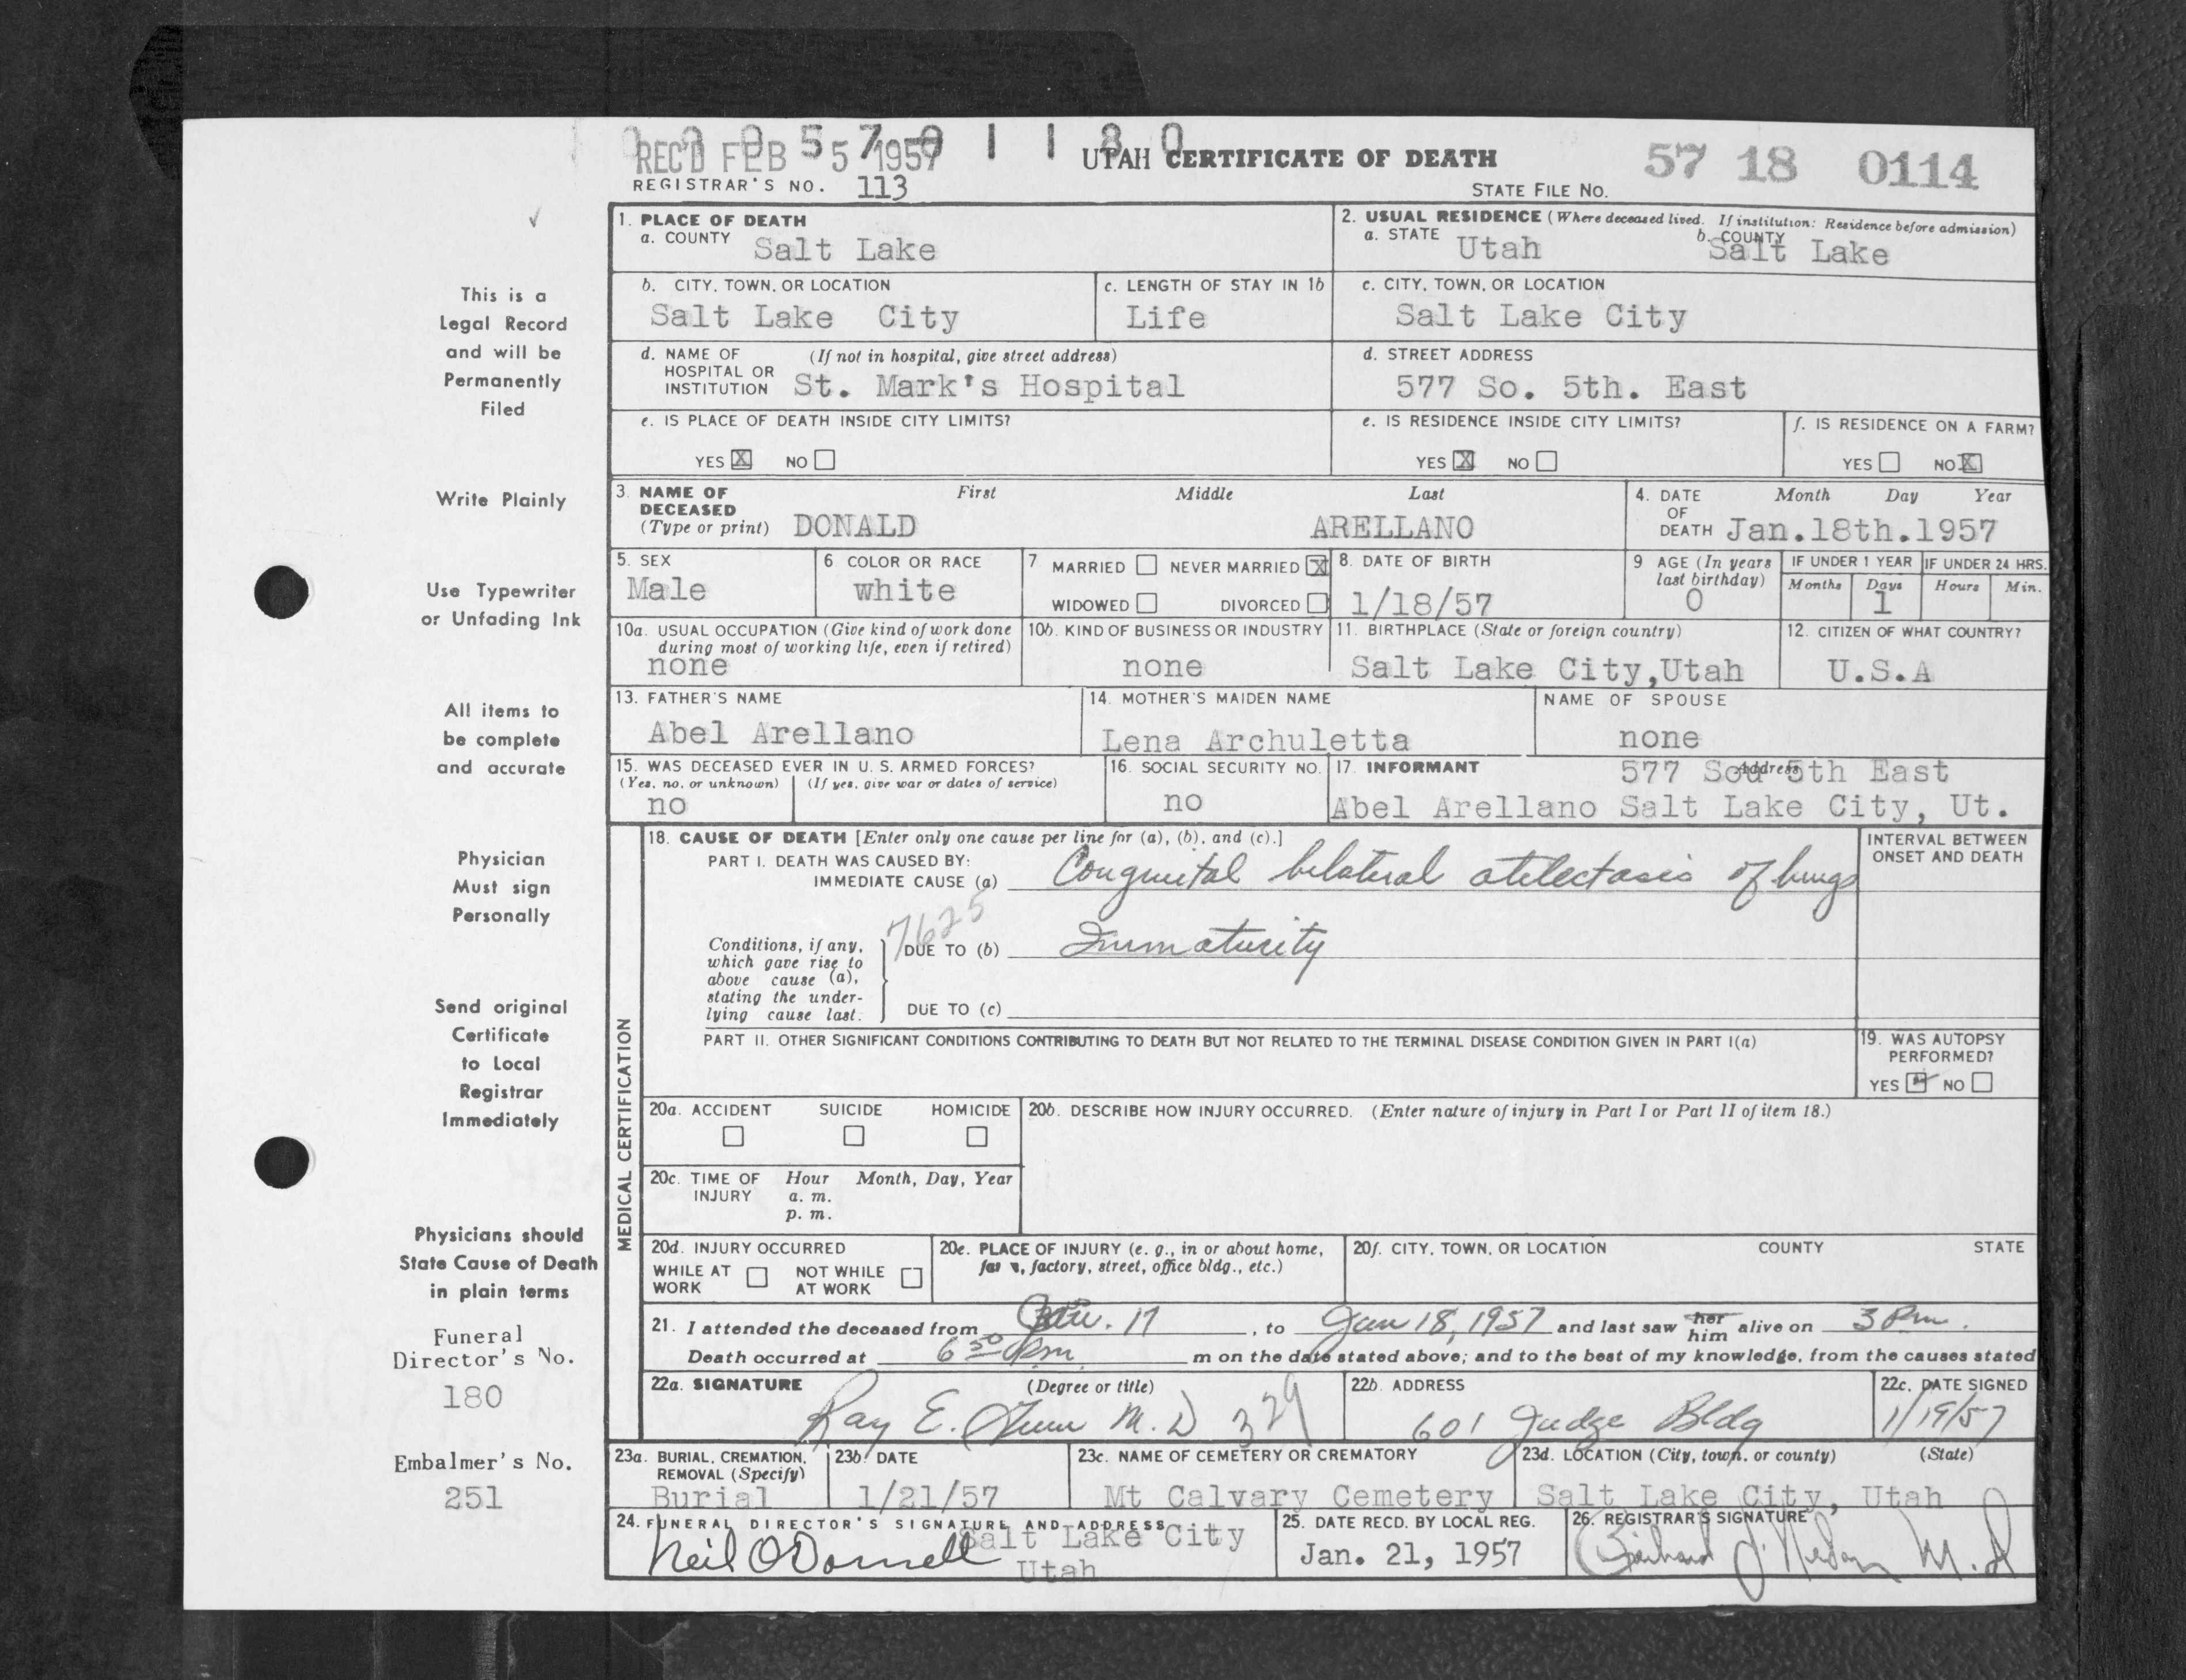 REC'D FEB 5 1957
UTAH CERTIFICATE OF DEATH
57 18 0114
REGISTRAR'S NO. 113
STATE FILE NO.
1. PLACE OF DEATH
a. COUNTY Salt Lake
2. USUAL RESIDENCE (Where deceased lived. If institution: Residence before admission)
a. STATE Utah b. COUNTY Salt Lake
This is a
Legal Record
and will be
Permanently
Filed
b. CITY, TOWN, OR LOCATION
Salt Lake City
c. LENGTH OF STAY IN 1b
Life
c. CITY, TOWN, OR LOCATION
Salt Lake City
d. NAME OF (If not in hospital, give street address)
HOSPITAL OR
INSTITUTION St. Mark's Hospital
d. STREET ADDRESS
577 So. 5th. East
e. IS PLACE OF DEATH INSIDE CITY LIMITS?
YES X NO
e. IS RESIDENCE INSIDE CITY LIMITS?
YES X NO
f. IS RESIDENCE ON A FARM?
YES NO X
Write Plainly
3. NAME OF First Middle Last
DECEASED
(Type or print) DONALD ARELLANO
4. DATE Month Day Year
OF
DEATH Jan.18th.1957
Use Typewriter
or Unfading Ink
5. SEX
Male
6 COLOR OR RACE
white
7 MARRIED NEVER MARRIED X
WIDOWED DIVORCED
8. DATE OF BIRTH
1/18/57
9 AGE (In years
last birthday)
0
IF UNDER 1 YEAR IF UNDER 24 HRS.
Months Days Hours Min.
1
10a. USUAL OCCUPATION (Give kind of work done
during most of working life, even if retired)
none
10b. KIND OF BUSINESS OR INDUSTRY
none
11. BIRTHPLACE (State or foreign country)
Salt Lake City,Utah
12. CITIZEN OF WHAT COUNTRY?
U.S.A
All items to
be complete
and accurate
13. FATHER'S NAME
Abel Arellano
14. MOTHER'S MAIDEN NAME
Lena Archuletta
NAME OF SPOUSE
none
15. WAS DECEASED EVER IN U. S. ARMED FORCES?
(Yes, no, or unknown) (If yes, give war or dates of service)
no
16. SOCIAL SECURITY NO.
no
17. INFORMANT Address
577 Sou 5th East
Abel Arellano Salt Lake City, Ut.
Physician
Must sign
Personally
MEDICAL CERTIFICATION
18. CAUSE OF DEATH [Enter only one cause per line for (a), (b), and (c).]
PART I. DEATH WAS CAUSED BY:
IMMEDIATE CAUSE (a) Congenital bilateral atelectasis of lungs
INTERVAL BETWEEN
ONSET AND DEATH
7625
Conditions, if any,
which gave rise to
above cause (a),
stating the under-
lying cause last.
DUE TO (b) Immaturity
DUE TO (c)
Send original
Certificate
to Local
Registrar
Immediately
PART II. OTHER SIGNIFICANT CONDITIONS CONTRIBUTING TO DEATH BUT NOT RELATED TO THE TERMINAL DISEASE CONDITION GIVEN IN PART I(a)
19. WAS AUTOPSY
PERFORMED?
YES NO
20a. ACCIDENT SUICIDE HOMICIDE
20b. DESCRIBE HOW INJURY OCCURRED. (Enter nature of injury in Part I or Part II of item 18.)
20c. TIME OF Hour Month, Day, Year
INJURY a. m.
p. m.
Physicians should
State Cause of Death
in plain terms
20d. INJURY OCCURRED
WHILE AT NOT WHILE
WORK AT WORK
20e. PLACE OF INJURY (e. g., in or about home,
factory, street, office bldg., etc.)
20f. CITY, TOWN, OR LOCATION COUNTY STATE
21. I attended the deceased from Jan. 17, to Jan 18, 1957 and last saw her him alive on 3 Pm.
Death occurred at 6 50 Pm m on the date stated above; and to the best of my knowledge, from the causes stated
Funeral
Director's No.
180
22a. SIGNATURE (Degree or title)
Ray E. M.D 329
22b. ADDRESS
601 Judge Bldg
22c. DATE SIGNED
1/19/57
Embalmer's No.
251
23a. BURIAL, CREMATION,
REMOVAL (Specify)
Burial
23b. DATE
1/21/57
23c. NAME OF CEMETERY OR CREMATORY
Mt Calvary Cemetery
23d. LOCATION (City, town, or county) (State)
Salt Lake City, Utah
24. FUNERAL DIRECTOR'S SIGNATURE AND ADDRESS
Neil O'Donnell Salt Lake City
Utah
25. DATE RECD. BY LOCAL REG.
Jan. 21, 1957
26. REGISTRAR'S SIGNATURE
M.D